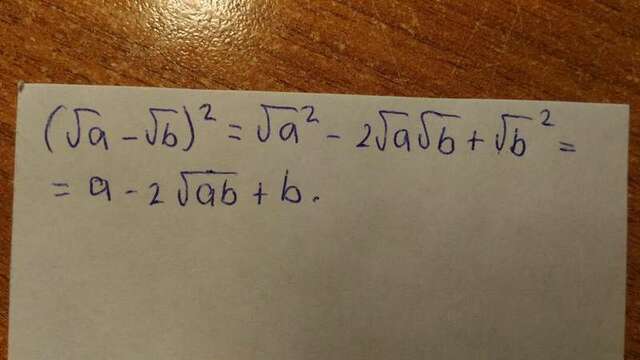 (√a - √b)² = √a² - 2√a√b + √b² =
= a - 2√ab + b.